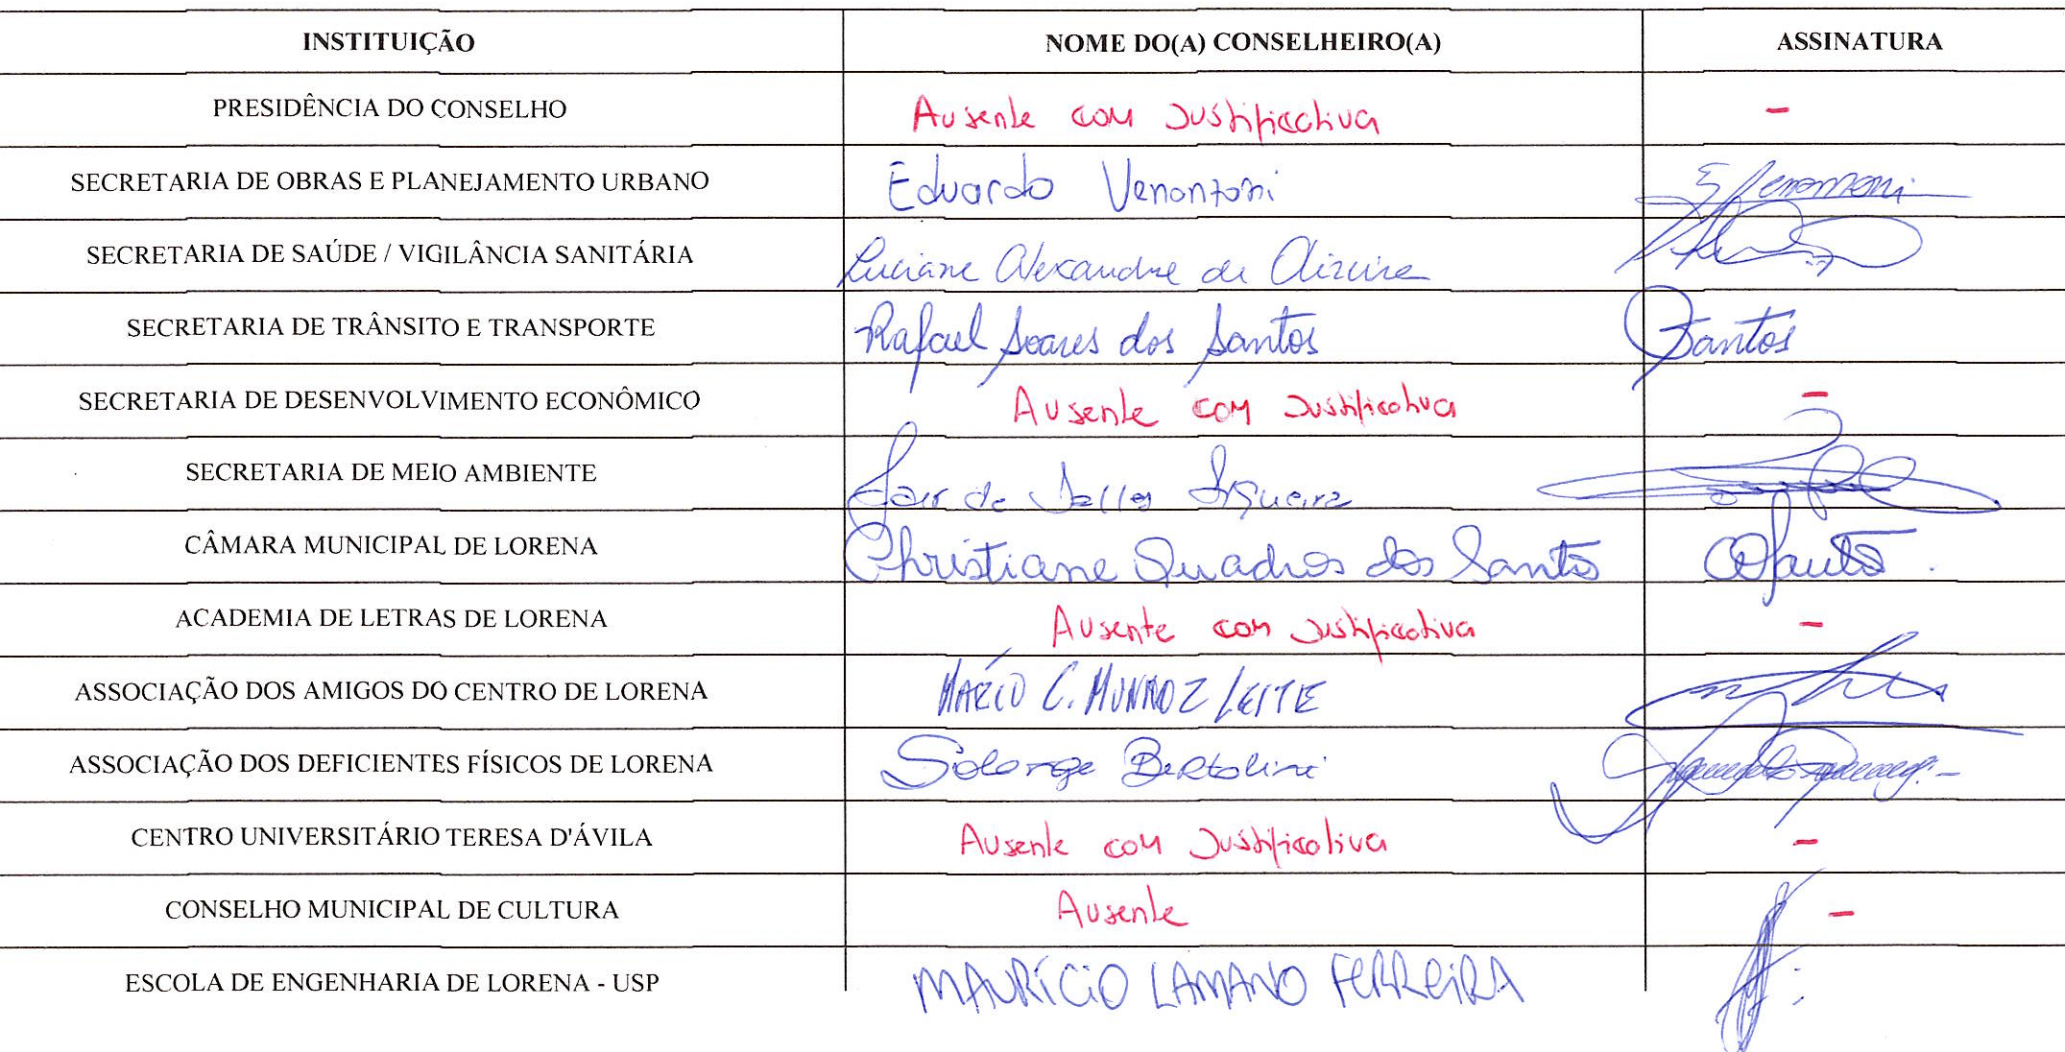 INSTITUIÇÃO NOME DO(A) CONSELHEIRO(A) ASSINATURA
PRESIDÊNCIA DO CONSELHO Ausente com Justificativa -
SECRETARIA DE OBRAS E PLANEJAMENTO URBANO Eduardo
SECRETARIA DE SAÚDE / VIGILÂNCIA SANITÁRIA Luciane Alexandre de Oliveira
SECRETARIA DE TRÂNSITO E TRANSPORTE Rafael Soares dos Santos Santos
SECRETARIA DE DESENVOLVIMENTO ECONÔMICO Ausente com Justificativa -
SECRETARIA DE MEIO AMBIENTE de Salles Siqueira
CÂMARA MUNICIPAL DE LORENA Christiane Quadros dos Santos
ACADEMIA DE LETRAS DE LORENA Ausente com Justificativa -
ASSOCIAÇÃO DOS AMIGOS DO CENTRO DE LORENA MÁRIO C. MUNHOZ LEITE
ASSOCIAÇÃO DOS DEFICIENTES FÍSICOS DE LORENA Solange Bertolini
CENTRO UNIVERSITÁRIO TERESA D'ÁVILA Ausente com Justificativa -
CONSELHO MUNICIPAL DE CULTURA Ausente -
ESCOLA DE ENGENHARIA DE LORENA - USP MAURÍCIO LAMANO FERREIRA